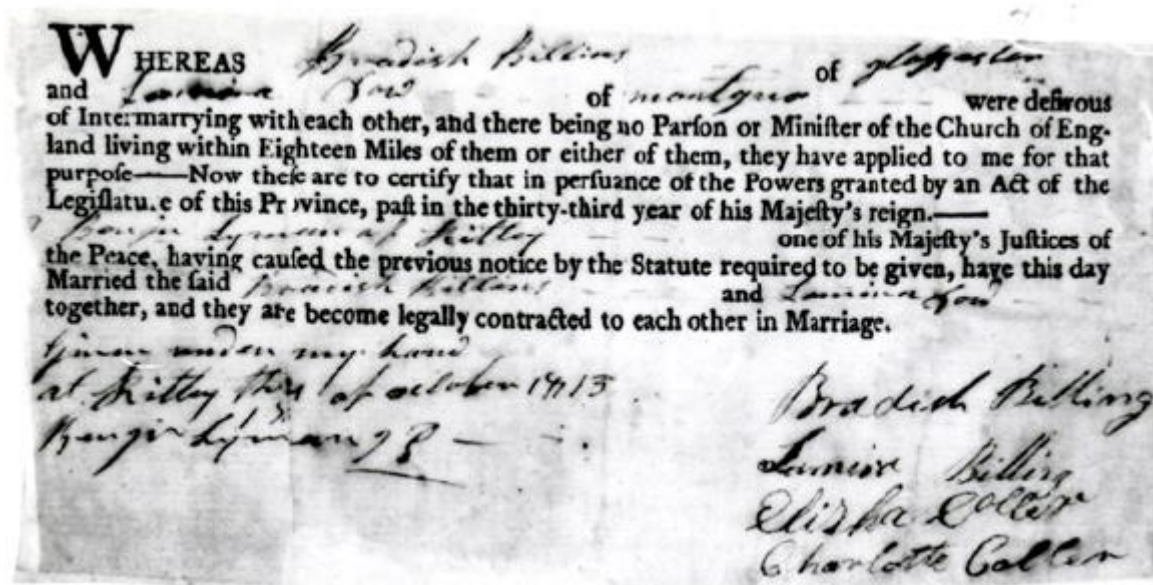 WHEREAS Bradish Billins of
and Lamina Low of were deſirous
of Intermarrying with each other, and there being no Parſon or Miniſter of the Church of Eng-
land living within Eighteen Miles of them or either of them, they have applied to me for that
purpoſe—Now theſe are to certify that in perſuance of the Powers granted by an Act of the
Legiſlatu.e of this Province, paſt in the thirty-third year of his Majeſty's reign.—
Lyman of Kitley one of his Majeſty's Juſtices of
the Peace, having cauſed the previous notice by the Statute required to be given, have this day
Married the ſaid Bradish and Lamina Low
together, and they are become legally contracted to each other in Marriage.
Given under my hand
at Kitley this of october
Lyman
Bradish Billing
Billing
Elizha
Charlotte